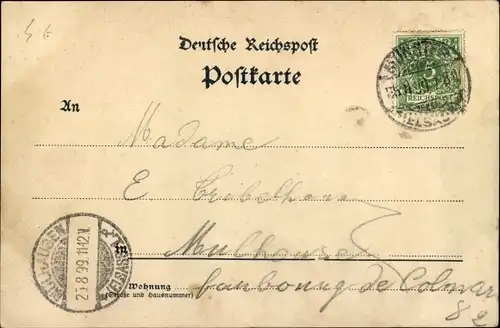 Deutsche Reichspost
Postkarte
An
Madame
E
Mulhouse
in
faubourg de Colmar
Wohnung
(Straße und Hausnummer)
82
REICHSPOST
5
MÜNSTER
(ELSASS)
MÜLHAUSEN
25.8.99.11-12V.
(ELSASS)